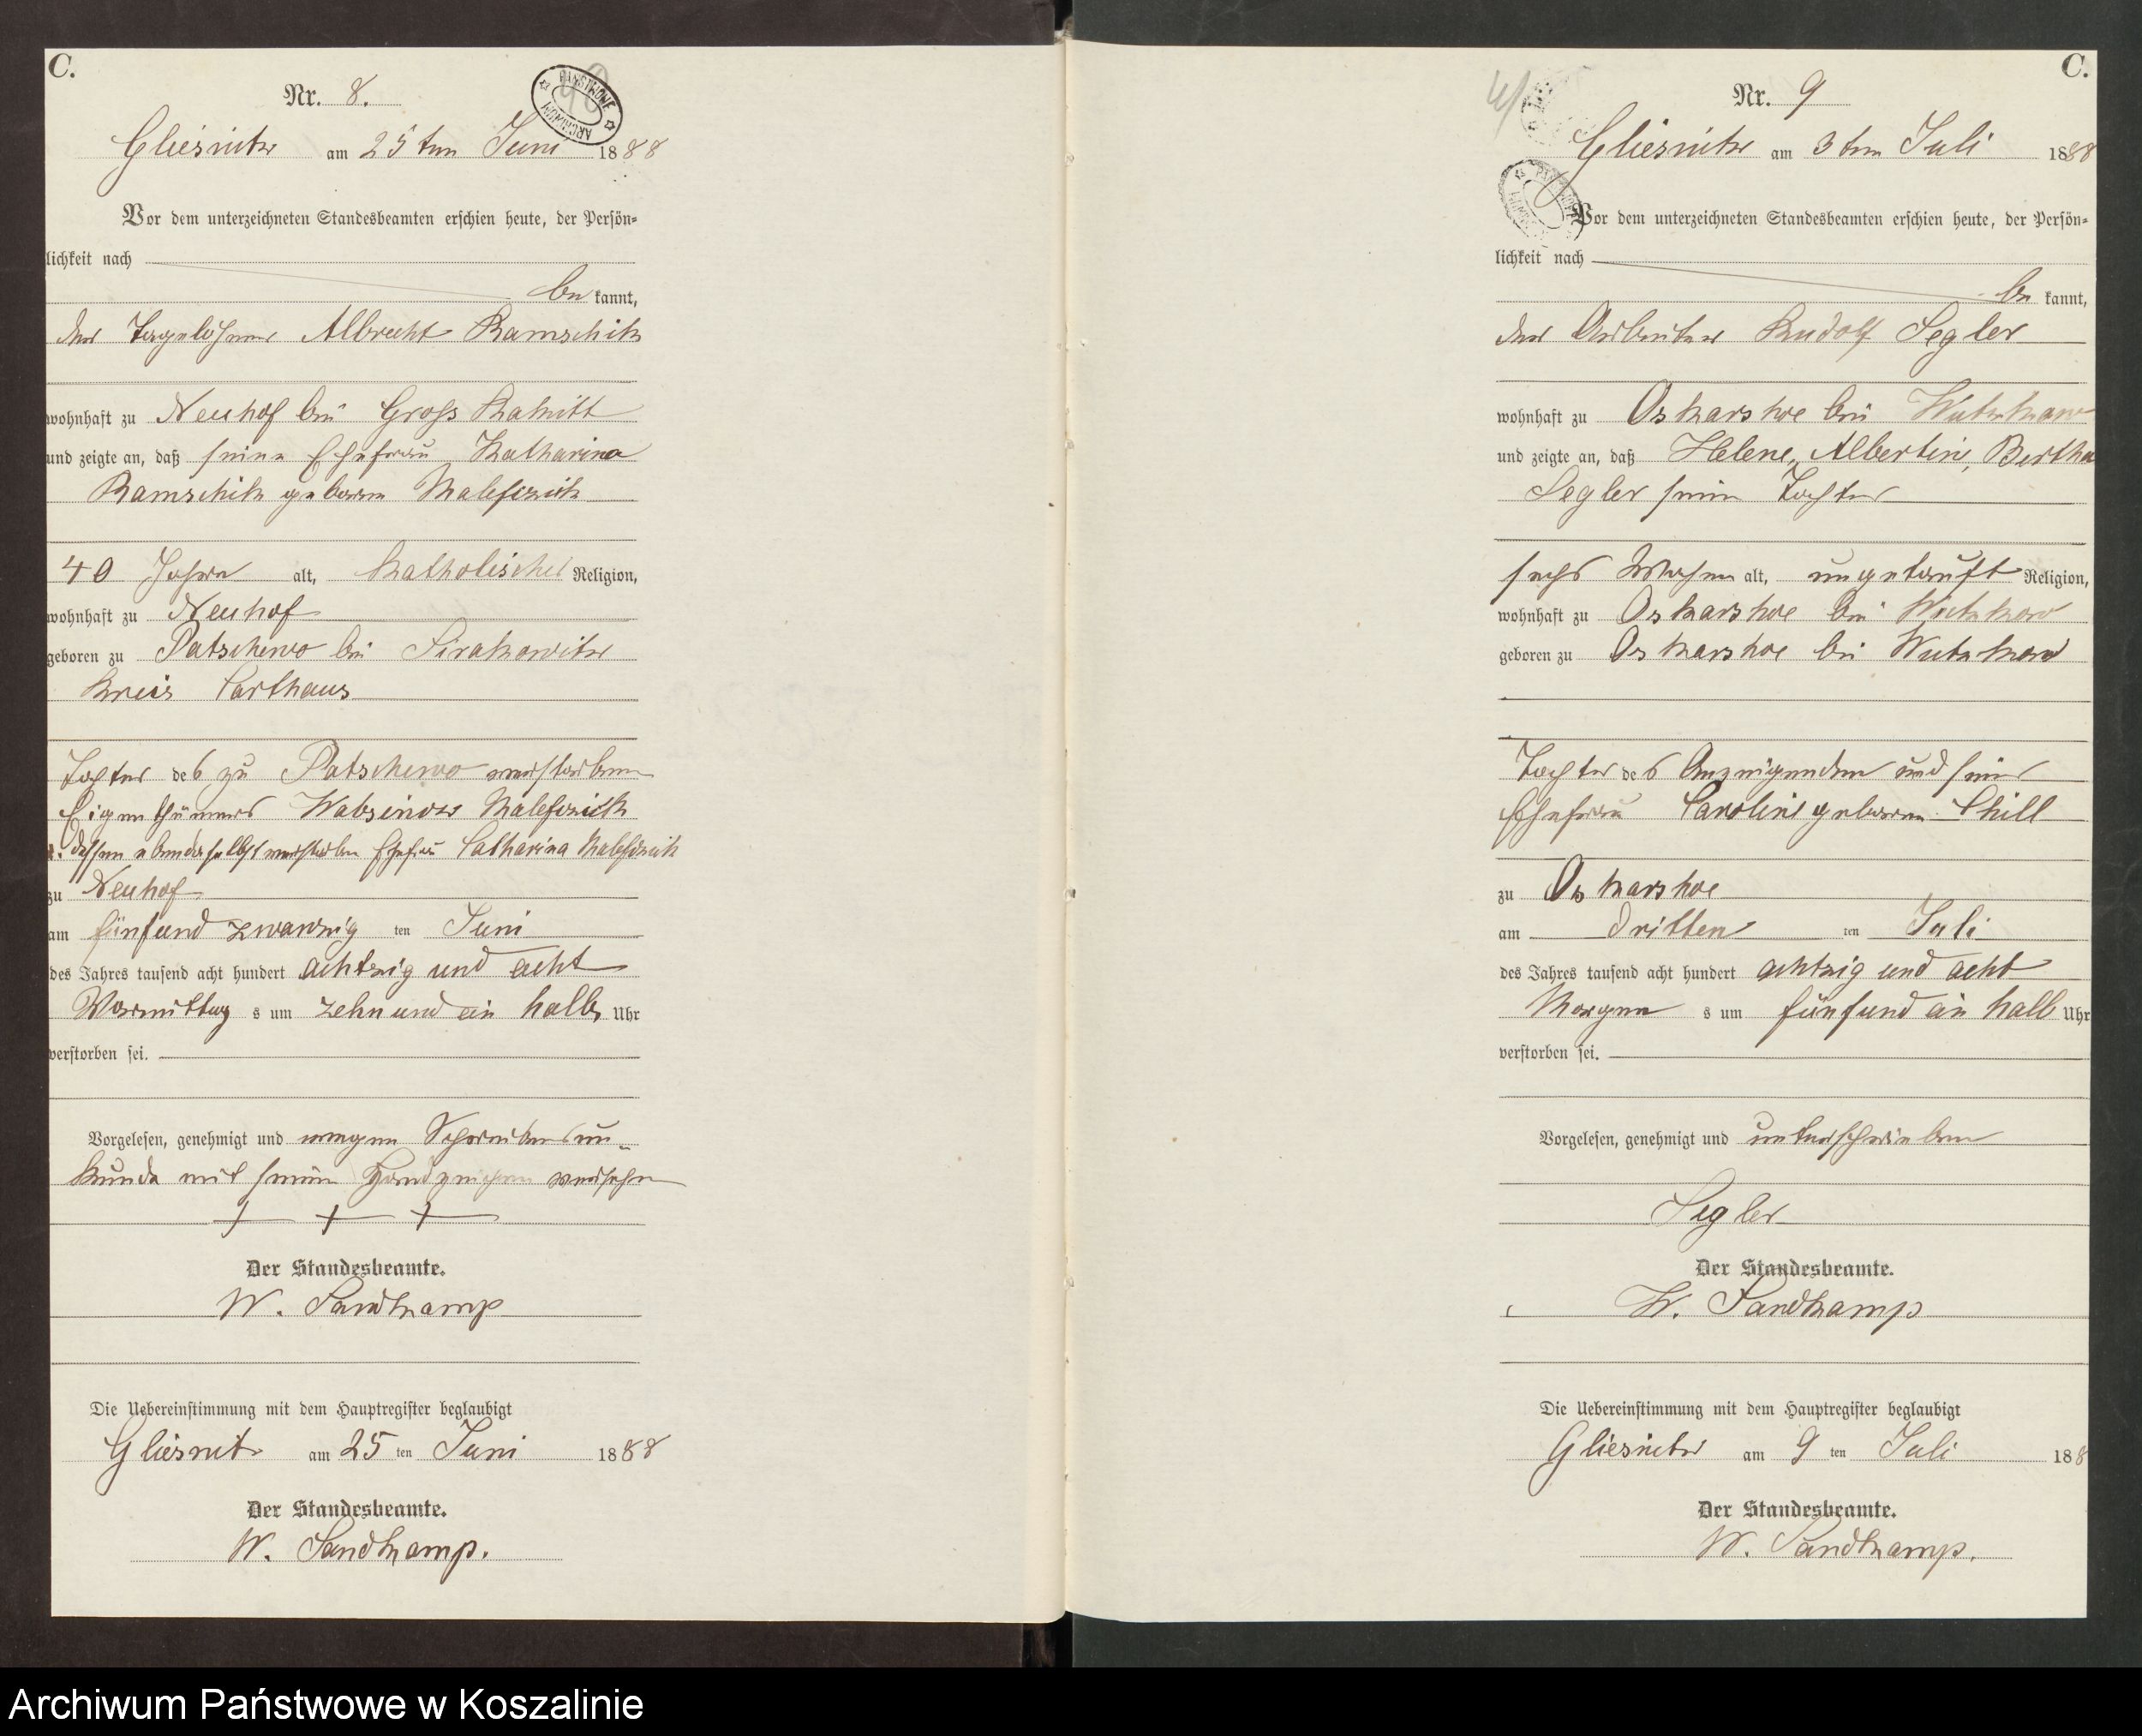 C.
Nr. 8.
Gliesnitz am 25 ten Juni 1888
Vor dem unterzeichneten Standesbeamten erschien heute, der Persön-
lichkeit nach
be kannt,
der Tagelöhner Albrecht Ramschik
wohnhaft zu Neuhof bei Gross Rakitt
und zeigte an, daß seine Ehefrau Katharina
Ramschik geborene
40 Jahre alt, katholischer Religion,
wohnhaft zu Neuhof
geboren zu Patschewo bei Sirakowitz
Kreis Carthaus
Tochter des zu Patschewo verstorbenen
Eigenthümers
u. dessen ebendaselbst verstorben Ehefrau Catharina
zu Neuhof
am fünfund zwanzig ten Juni
des Jahres tausend acht hundert achtzig und acht
Vormittag s um zehn und ein halb Uhr
verstorben sei.
Vorgelesen, genehmigt und wegen Schreibensun-
kunde mit seinem Handzeichen versehen
+ + +
Der Standesbeamte.
W. Sandkamp
Die Uebereinstimmung mit dem Hauptregister beglaubigt
Gliesnitz am 25 ten Juni 1888
Der Standesbeamte.
W. Sandkamp.
C.
Nr. 9
Gliesnitz am 3 ten Juli 1888
Vor dem unterzeichneten Standesbeamten erschien heute, der Persön-
lichkeit nach
be kannt,
der Arbeiter Rudolf Segler
wohnhaft zu Oskarshoe bei Wutzkow
und zeigte an, daß Helene, Albertine, Bertha
Segler seine Tochter
sechs Wochen alt, ungetauft Religion,
wohnhaft zu Oskarshoe bei Wutzkow
geboren zu Oskarshoe bei Wutzkow
Tochter des Anzeigenden und seiner
Ehefrau Caroline geborenen Thill
zu Oskarshoe
am dritten ten Juli
des Jahres tausend acht hundert achtzig und acht
Morgen s um fünfund ein halb Uhr
verstorben sei.
Vorgelesen, genehmigt und unterschrieben
Segler
Der Standesbeamte.
W. Sandkamp
Die Uebereinstimmung mit dem Hauptregister beglaubigt
Gliesnitz am 9 ten Juli 188
Der Standesbeamte.
W. Sandkamp.
Archiwum Państwowe w Koszalinie